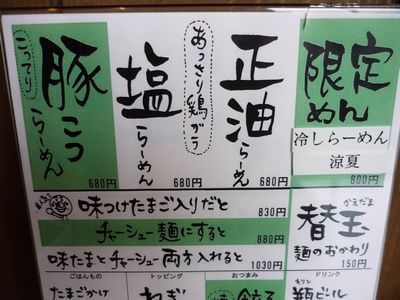 限定
めん
冷しらーめん
涼夏
800円
正油らーめん
680円
あっさり鶏がら
塩らーめん
680円
こってり
豚こつらーめん
680円
味つけたまご入りだと 830円
チャーシュー麺にすると 880円
味たまとチャーシュー両方入れると 1030円
かえだま
替玉
麺のおかわり
150円
ごはんもの
たまごかけ
トッピング
ねぎ
おつまみ
餃子
ドリンク
キリン
瓶ビール